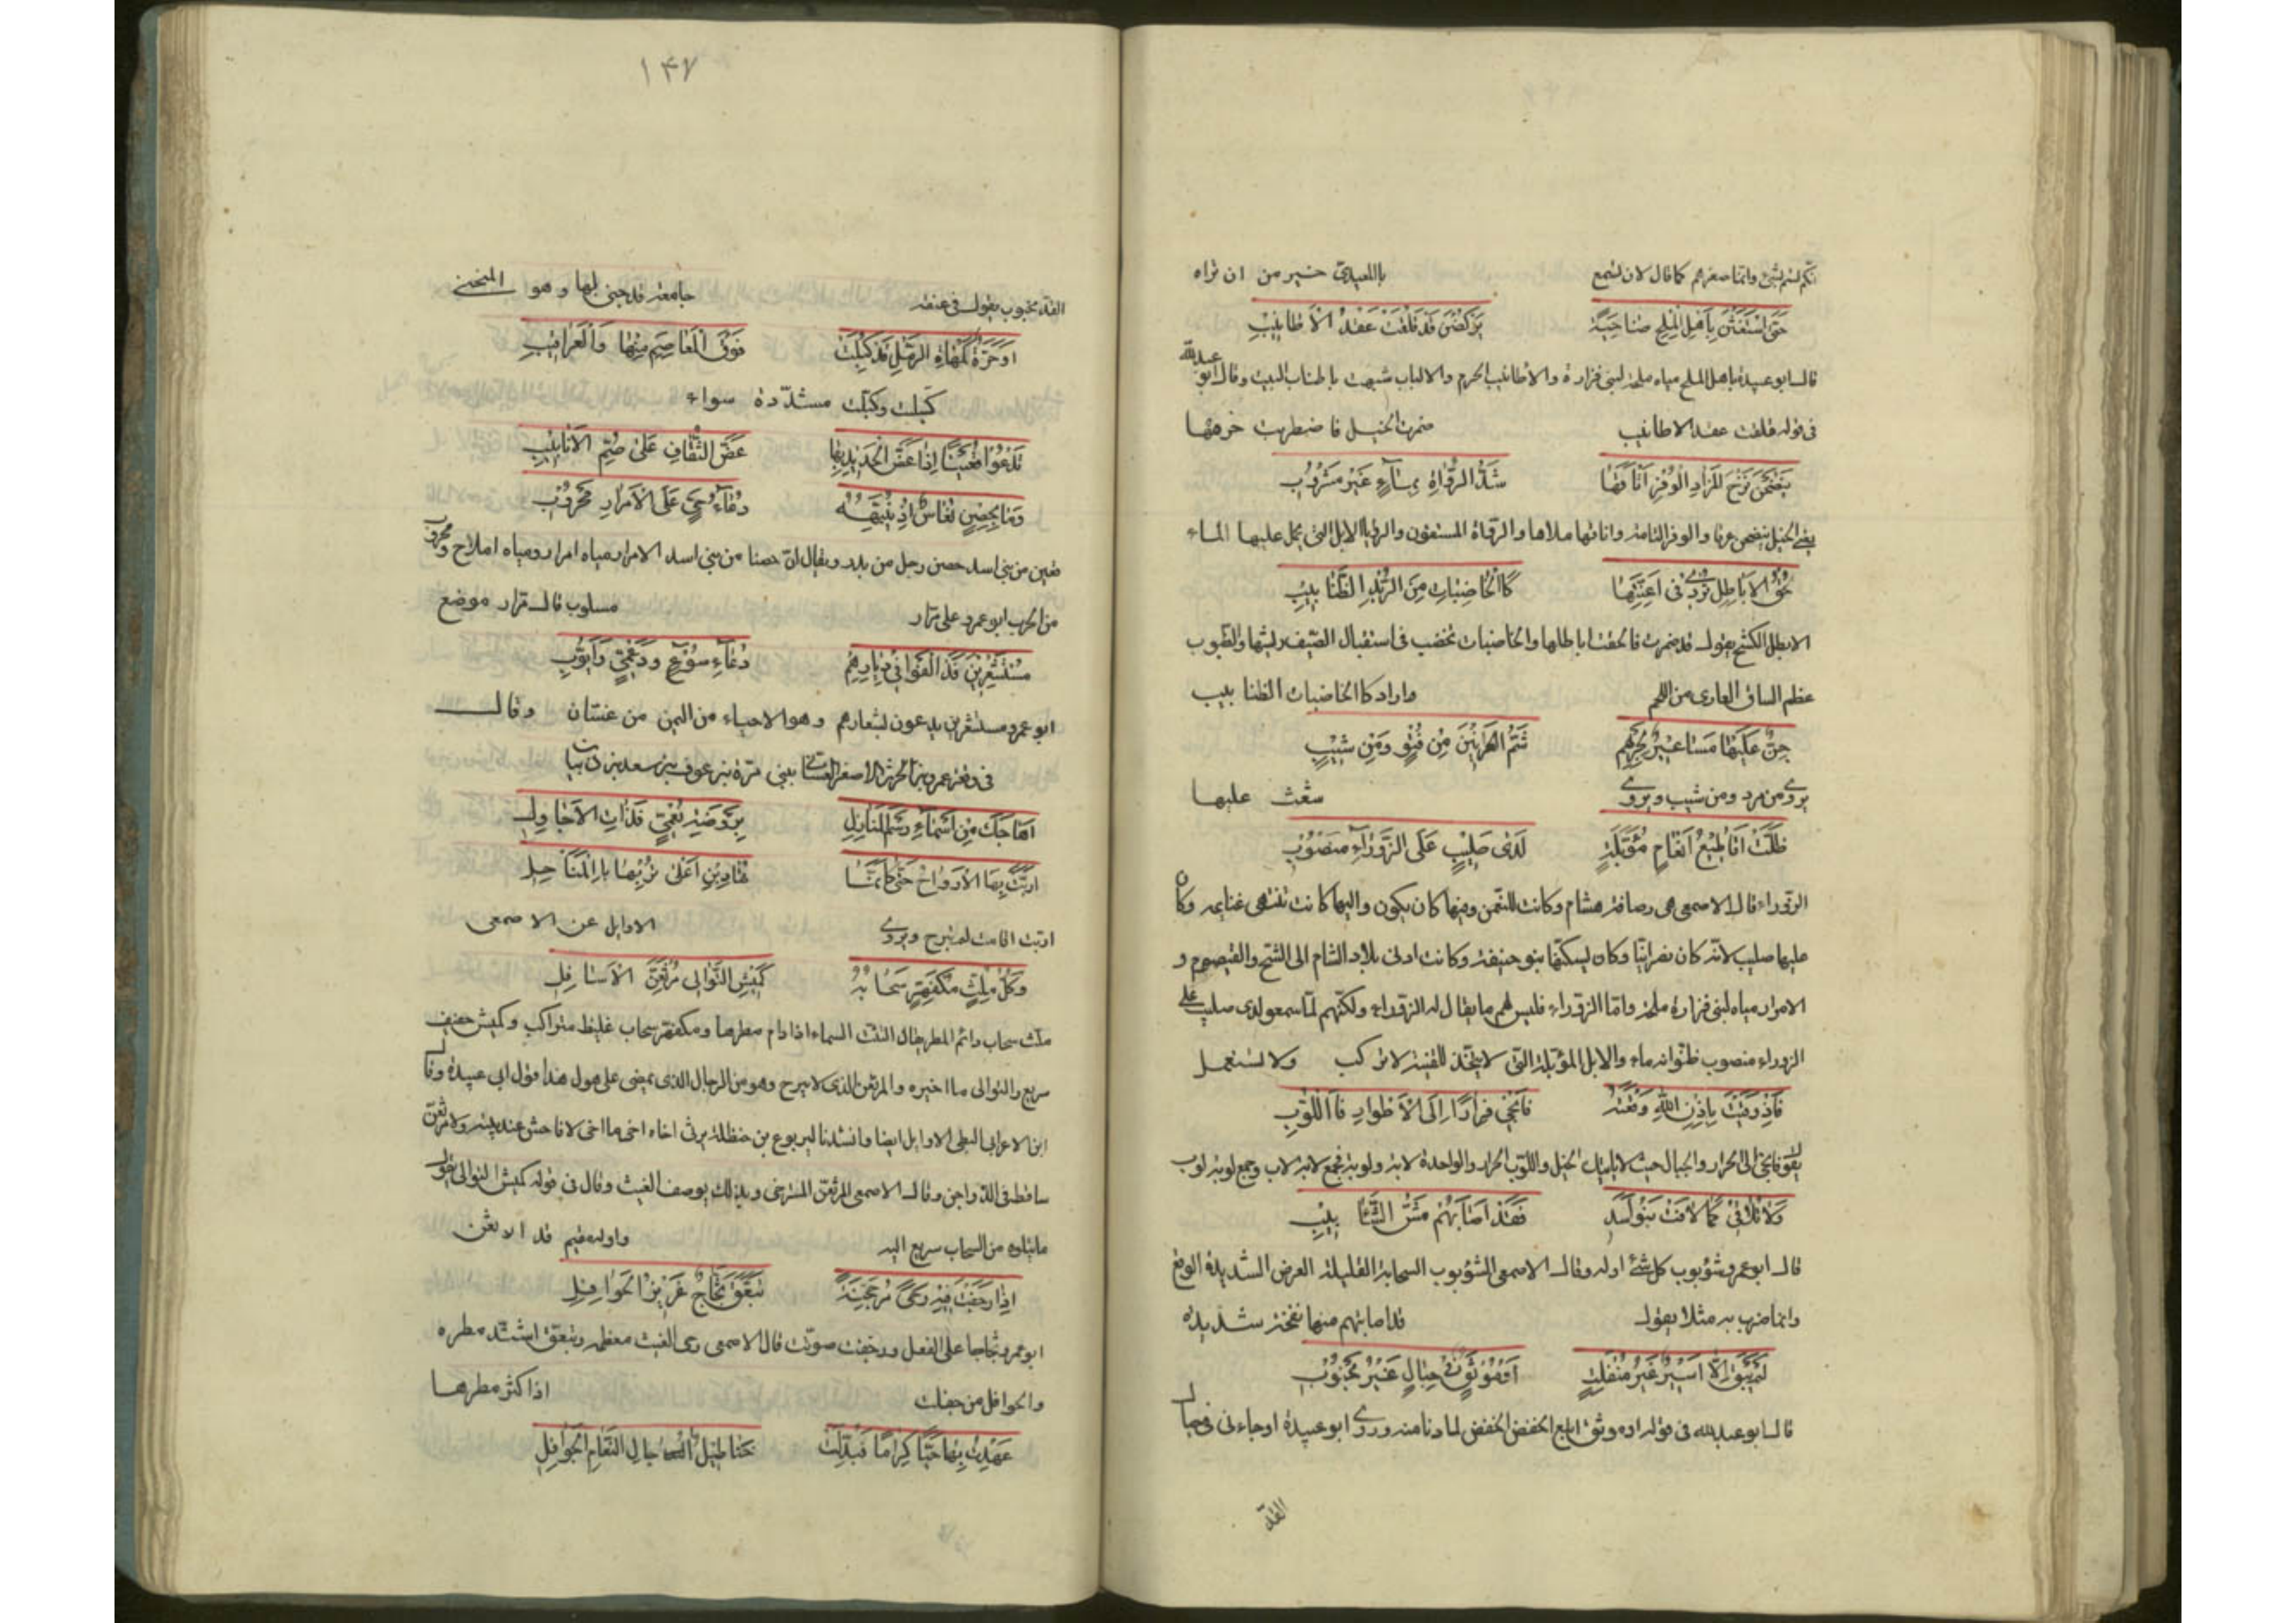 انكم لستم بشيء وانما صغرهم كما قال لان تسمع باالمعيدي خير من ان تراه
حَتَّى اسْتَغَثْنَ بِاَهْلِ الْمِلْحِ ضاحِيَةً يَرْكُضْنَ قَدْ قَلِقَتْ عَقْدُ الْاَطانِيْبِ
قال ابو عبيدة باهل الملح مياه ملحة لبني فزارة والاطانيب الحزم والالباب شبهت باطناب البيت وقال ابو عبد الله
في قوله قلقت عقد الاطانيب ضمرت الخيل فاضطربت حزمها
يَنْضَحْنَ نَضْحَ المَزادِ الوُفْرِ اَتْاَقَها شَدُّ الرُّواةِ بِمآءٍ غَيْرِ مَشْرُوبِ
يعني الخيل ينضحن عرقا والوفر التامة واتاقها ملاها والرواة المستقون والروايا الابل التي يحمل عليها الماء
قُبُّ الاَياطِلِ تَرْدِي في اَعِنَّتِها كَاالْخاضِباتِ مِنَ الزُّعْرِ الظَّنابِيبِ
الايطل الكشح يقول قد ضمرت فالحقت اياطلها والخاضبات تخضب في استقبال الصيف ريشها والظنبوب
عظم الساق العاري من اللحم واراد كاالخاضبات الظنابيب
شُعْثٌ عَلَيْها مَساعِيْرٌ لِحَرْبِهِم شُمُّ العَرانِيْنَ مِنْ مُرْدٍ وَمِنْ شِيْبِ
يروى من مرد ومن شيب ويروى شعث عليها
ظَلَّتْ اَقاطِيْعُ اَنْعامٍ مُؤَبَّلَةٍ لَدَى صَلِيْبٍ عَلَى الزَّوْرآءِ مَنْصُوْبِ
الزوراء قال الاصمعي هي رصافة هشام وكانت للنعمن وفيها كان يكون واليها كانت تنتهي غنايمه وكان
عليها صليب لانه كان نصرانيا وكان يسكنها بنو حنيفة وكانت ادنى بلاد الشام الى الشيح والقيصوم و
الامرار مياه لبني فزارة ملحة واما الزوراء فليس لهم ما يقال له الزوراء ولكنهم لما سمعو لدى صليب على
الزوراء منصوب ظنوا انه ماء والابل المؤبلة التي لا يتخذ للقنية لا تركب ولا تستعمل
فَاِذْ وُقِيْتِ بِاِذْنِ اللهِ وَقْعَتَهُ فَانْجِي فِرارًا اِلَى الْاَطْوادِ فَااللُّوْبِ
يقول فانجي الى الحرار والجبال حيث لا ياتيك الخيل واللوب الحرار والواحدة لابة ولوبة فجمع لابة لاب وجمع لوبة لوب
وَلا تُلاقِي كَما لاقَتْ بَنُو اَسَدٍ فَقَدْ اَصابَتْهُمْ مِنْهَا الشَّئابِيْبِ
قال ابو عمرو شؤبوب كل شيء اوله وقال الاصمعي الشؤبوب السحابة القليلة العرض الشديدة الوقع
وانما ضرب به مثلا يقول قد اصابتهم منها نفحة شديدة
لَمْ يَبْقَ اِلَّا اَسِيْرٌ غَيْرُ مُنْفَلِتٍ اَوْ مُوْثَقٌ في حِبالٍ غَيْرُ مَجْنُوْبِ
قال ابو عبد الله في قوله او موثق اتبع الخفض الخفض لما دنا منه وروى ابو عبيدة او جاءني في حبال
القد
١٤٧
القد مجنوب يقول في عنقه جامعة قد جنى لها وهو المنحني
اَوْ حُرَّةٌ كَمَهاةِ الرَّمْلِ قَدْ كُبِلَتْ فَوْقَ المَعاصِمِ مِنْها وَالعَراقِيْبِ
كبلت وكبلت مشددة سواء
تَدْعُوا قُعَيْنًا اِذا عَضَّ الْحَدِيْدُ بِها عَضَّ الثِّقافِ عَلَى صُمِّ الاَنابِيْبِ
قعين من بني اسد حصن رجل من بدر ويقال ان حصنا من بني اسد الامرار مياه امرار ومياه املاح ومحروب
من الحرب ابو عمرو على مرار مسلوب قال مرار موضع
مُسْتَشْعِرِيْنَ قَدْ اَلْفَوا في دِيارِهِمُ دُعآءَ سُوْعٍ وَدُعْمِيٍّ وَاَيُّوبِ
ابو عمرو مستشعرين يدعون بشعارهم وهو الاحياء من اليمن من غسان وقال
في وقعة عمرو بن الحرث الاصغر الغساني ببني مرة بن عوف بن سعد بن ذبيان
اَهاجَكَ مِنْ اَسْماءَ رَسْمُ المَنازِلِ بِرَوْضَةِ نُعْمِيٍّ فَذاتِ الاَجاوِلِ
اَرَبَّتْ بِها الاَرْواحُ حَتَّى كَاَنَّما تَهادَيْنَ اَعْلَى تُرْبِها بِالْمَناخِلِ
اربت اقامت لم تبرح ويروى الاوايل عن الاصمعي
وَكُلُّ مُلِثٍّ مُكْفَهِرٍّ سَحابُهُ كَمِيْشِ التَّوالِي مُرْثَعِنِّ الاَسافِلِ
ملث سحاب دائم المطر يقال الثت السماء اذا دام مطرها ومكفهر سحاب غليظ متراكب وكميش خفيف
سريع والتوالي ما اخيره والمرثعن الذي لا يبرح وهو من الرجال الذي يمضي على هول هذا قول ابي عبيدة وقال
ابن الاعرابي البطي الاوايل ايضا وانشدنا ليربوع بن حنظلة يرثي اخاه اخي ما اخي لا فاحش عند بيته ولا مرثعن
ساقط في الدواجن وقال الاصمعي المرثعن المسترخي وبذلك يوصف الغيث وقال في قوله كميش التوالي يقول
ما يتلوه من السحاب سريع اليه واوله مقيم قد ارثعن
اِذا رَجَفَتْ فِيْهِ رَحًى مُرْجَحِنَّةٌ تَبَعَّقَ ثَجَّاجٌ غَزِيْرُ الحَوافِلِ
ابو عمرو ثجاجا على الفعل ورجفت صوتت قال الاصمعي رحى الغيث معظمه وتبعق اشتد مطره
والحوافل من حفلت اذا كثر مطرها
عَهِدْتُ بِها حَيًّا كِرامًا فَبُدِّلَتْ خَناطِيْلَ اجالِ النَّعامِ الْجَوافِلِ